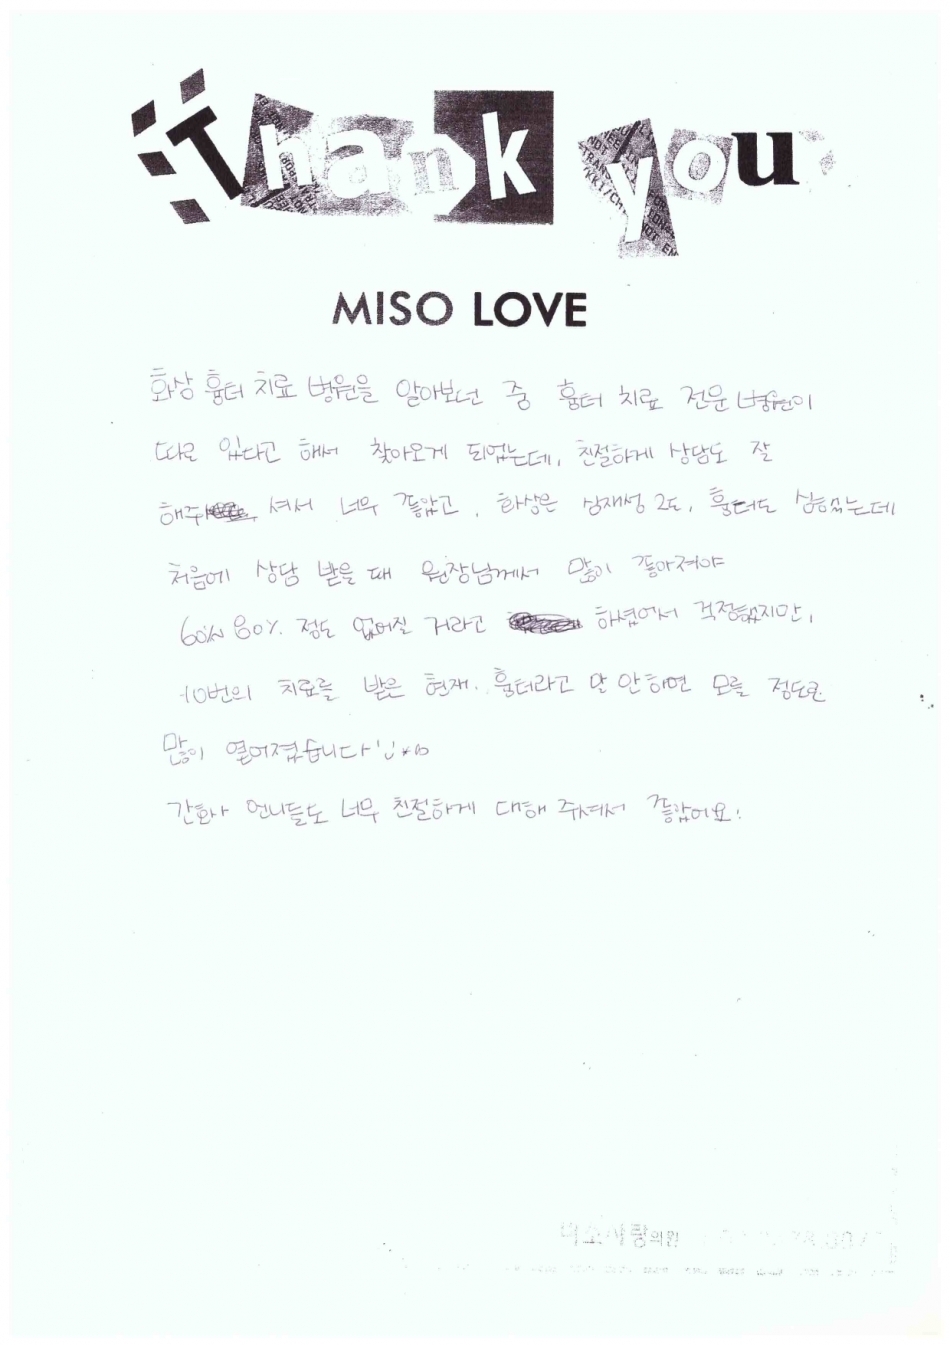 Thank you
MISO LOVE
화상 흉터 치료 병원을 알아보던 중 흉터 치료 전문 병원이
따로 있다고 해서 찾아오게 되었는데, 친절하게 상담도 잘
해주 셔서 너무 좋았고, 화상은 심재성 2도, 흉터도 심했는데
처음에 상담 받을 때 원장님께서 많이 좋아져야
60%~80% 정도 없어질 거라고 하셨어서 걱정했지만,
10번의 치료를 받은 현재. 흉터라고 말 안하면 모를 정도로
많이 옅어졌습니다
간호사 언니들도 너무 친절하게 대해 주셔서 좋았어요!
미소사랑의원